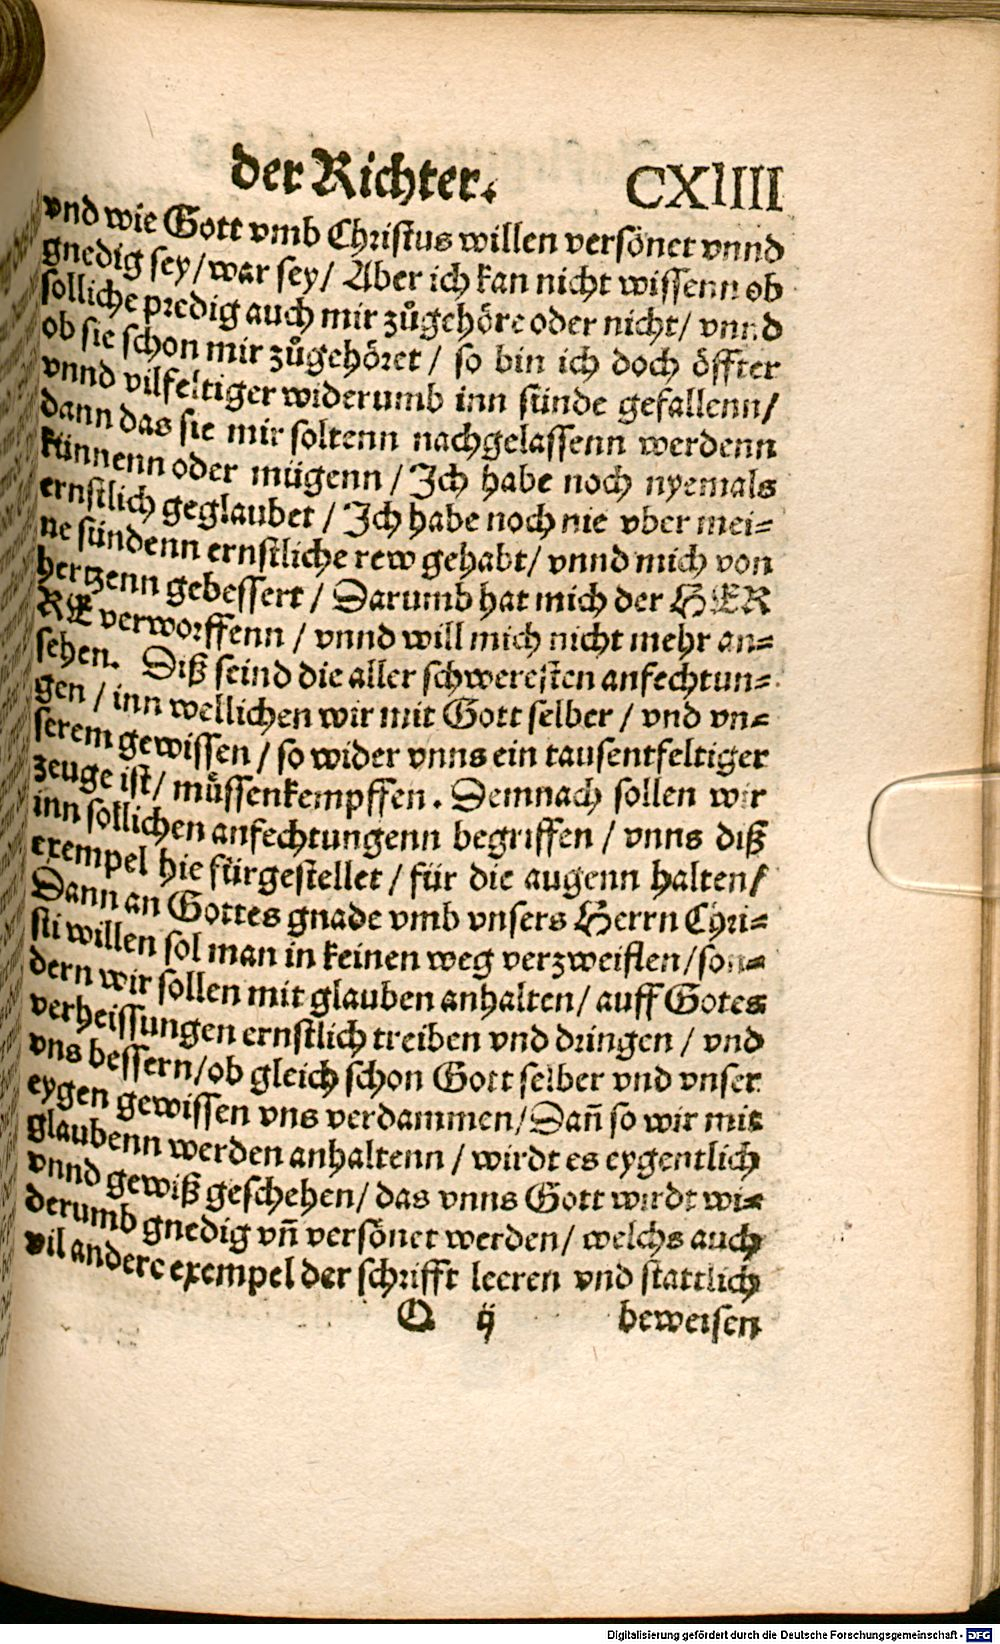 der Richter. CXIIII
vnd wie Gott vmb Christus willen versönet vnnd
gnedig sey/ war sey/ Aber ich kan nicht wissenn ob
solliche predig auch mir zůgehöre oder nicht/ vnnd
ob sie schon mir zůgehöret / so bin ich doch öffter
vnnd vilfeltiger widerumb inn sünde gefallenn/
dann das sie mir soltenn nachgelassenn werdenn
künnenn oder mügenn / Ich habe noch nyemals
ernstlich geglaubet / Ich habe noch nie vber mei=
ne sündenn ernstliche rew gehabt/ vnnd mich von
hertzenn gebessert / Darumb hat mich der HER
RE verworffenn / vnnd will mich nicht mehr an=
sehen. Diß seind die aller schweresten anfechtun=
gen / inn wellichen wir mit Gott selber / vnd vn=
serem gewissen / so wider vnns ein tausentfeltiger
zeuge ist/ müssen kempffen. Demnach sollen wir
inn sollichen anfechtungenn begriffen / vnns diß
exempel hie fürgestellet / für die augenn halten/
Dann an Gottes gnade vmb vnsers Herrn Chri=
sti willen sol man in keinen weg verzweiflen/ son=
dern wir sollen mit glauben anhalten/ auff Gotes
verheissungen ernstlich treiben vnd dringen / vnd
vns bessern/ ob gleich schon Gott selber vnd vnser
eygen gewissen vns verdammen/ Dañ so wir mit
glaubenn werden anhaltenn / wirdt es eygentlich
vnnd gewiß geschehen/ das vnns Gott wirdt wi=
derumb gnedig vñ versönet werden/ welchs auch
vil andere exempel der schrifft leeren vnd stattlich
Q ij beweisen
Digitalisierung gefördert durch die Deutsche Forschungsgemeinschaft - DFG